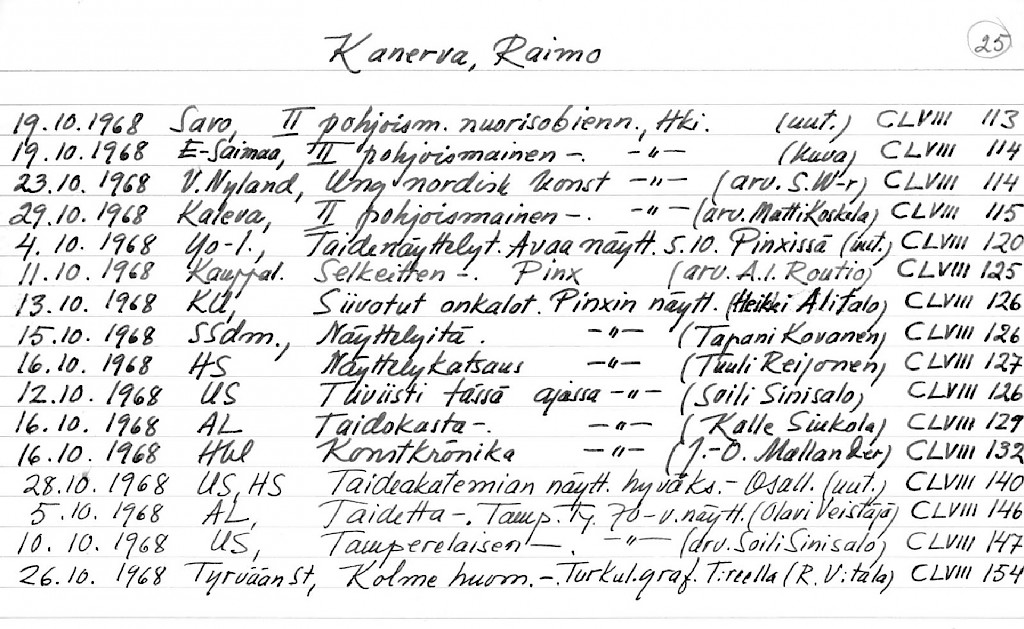 Kanerva, Raimo 25
19.10.1968 Savo, II pohjoism. nuorisobienn., Hki. (uut.) CLVIII 113
19.10.1968 E-Saimaa, II pohjoismainen -. -"- (kuva) CLVIII 114
23.10.1968 V. Nyland, Ung nordisk konst -"- (arv. S.W-r) CLVIII 114
29.10.1968 Kaleva, II pohjoismainen -. -"- (arv. Matti Koskela) CLVIII 115
4.10.1968 Yo-l., Taidenäyttelyt. Avaa näytt. 5.10. Pinxissä (uut.) CLVIII 120
11.10.1968 Kauppal. Selkeitten -. Pinx (arv. A.I. Routio) CLVIII 125
13.10.1968 KU, Siivotut onkalot. Pinxin näytt. (Heikki Alitalo) CLVIII 126
15.10.1968 SSdm., Näyttelyitä. -"- (Tapani Kovanen) CLVIII 126
16.10.1968 HS Näyttelykatsaus -"- (Tuuli Reijonen) CLVIII 127
12.10.1968 US Tiiviisti tässä ajassa -"- (Soili Sinisalo) CLVIII 126
16.10.1968 AL Taidokasta -. -"- (Kalle Siukola) CLVIII 129
16.10.1968 Hbl Konstkrönika -"- (J.-O. Mallander) CLVIII 132
28.10.1968 US, HS Taideakatemian näytt. hyväks.- Osall. (uut.) CLVIII 140
5.10.1968 AL, Taidetta -. Tamp. Ty. 70-v. näytt. (Olavi Veistäjä) CLVIII 146
10.10.1968 US, Tamperelaisen -. -"- (arv. Soili Sinisalo) CLVIII 147
26.10.1968 Tyrvään St, Kolme huom. -. Turkul. graf. T:reella (R. Vitala) CLVIII 154